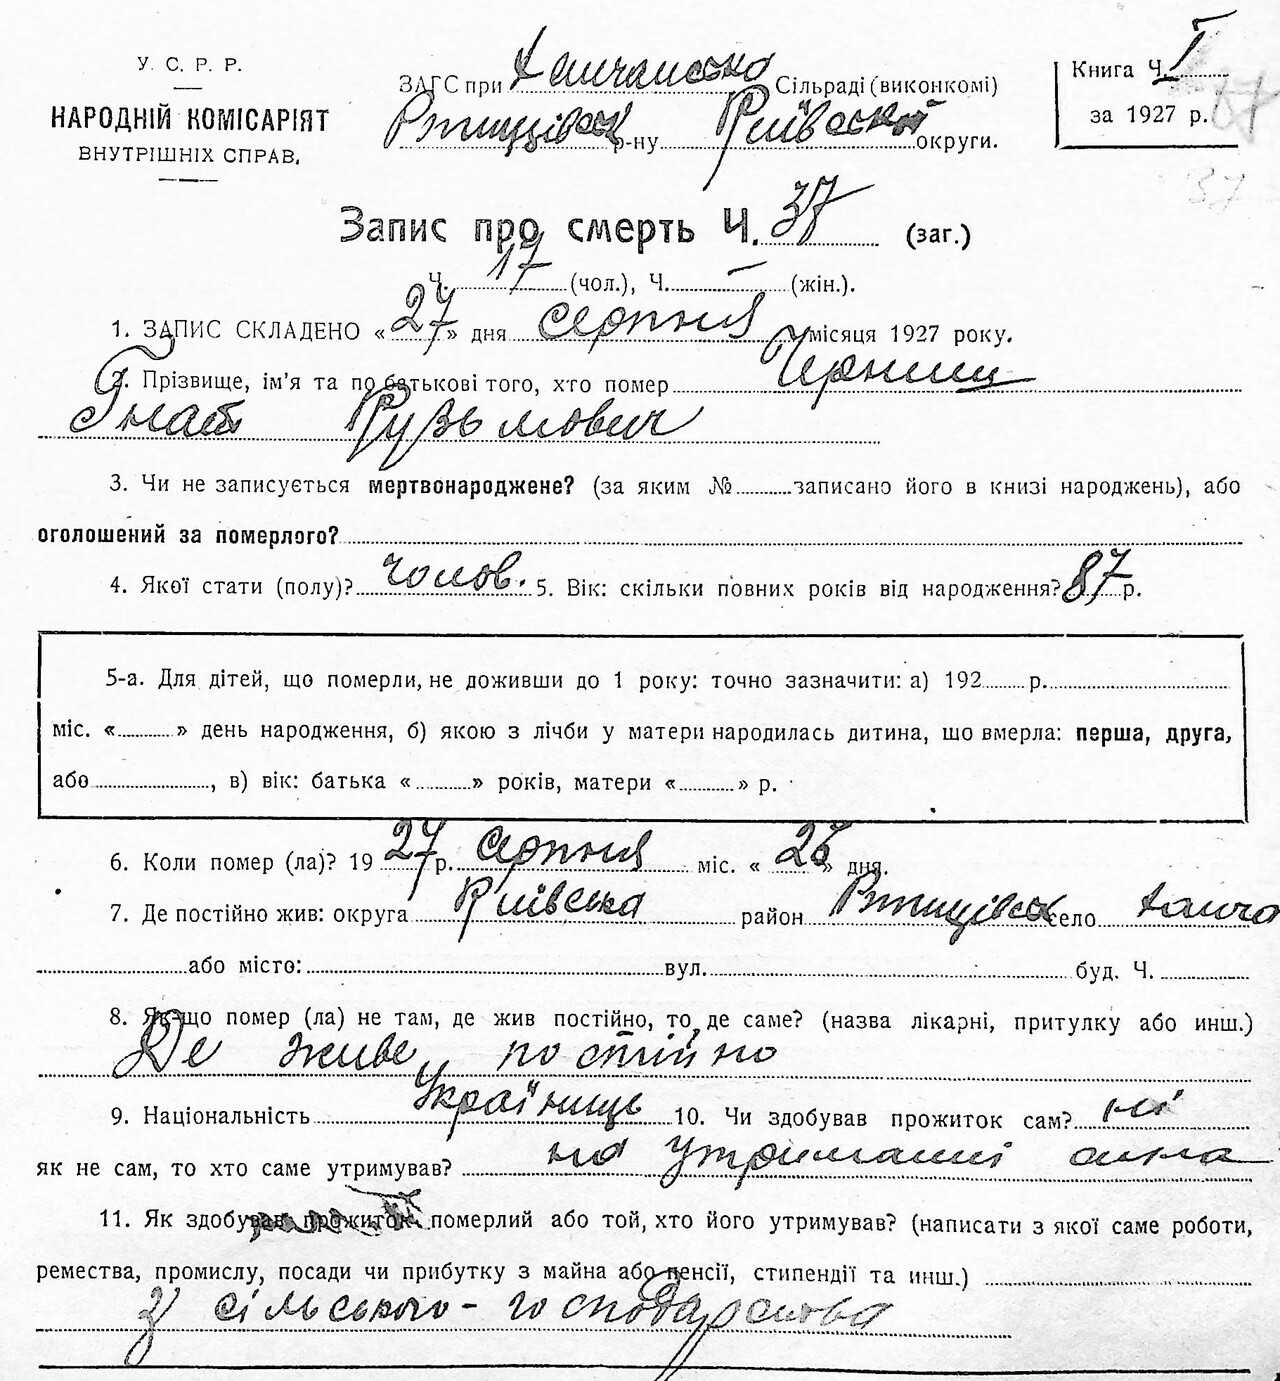 У. С. Р. Р.
НАРОДНІЙ КОМІСАРІЯТ
ВНУТРІШНІХ СПРАВ.
ЗАГС при Сільраді (виконкомі)
Ржищівськ р-ну Київської округи.
Книга Ч. I
за 1927 р.
37
Запис про смерть Ч. 37 (заг.)
Ч. 17 (чол.), Ч. — (жін.).
1. ЗАПИС СКЛАДЕНО «27» дня серпня місяця 1927 року.
2. Прізвище, ім'я та по батькові того, хто помер Черниш
Гнат Кузьмович
3. Чи не записується мертвонароджене? (за яким № записано його в книзі народжень), або
оголошений за померлого?
4. Якої стати (полу)? чолов. 5. Вік: скільки повних років від народження? 87 р.
5-а. Для дітей, що померли, не доживши до 1 року: точно зазначити: а) 192 р.
міс. « » день народження, б) якою з лічби у матери народилась дитина, що вмерла: перша, друга,
або , в) вік: батька « » років, матери « » р.
6. Коли помер (ла)? 1927 р. серпня міс. «26» дня.
7. Де постійно жив: округа Київська район Ржищівськ село
або місто: вул. буд. Ч.
8. Як що помер (ла) не там, де жив постійно, то де саме? (назва лікарні, притулку або инш.)
Де живе постійно
9. Національність Українець 10. Чи здобував прожиток сам? ні
як не сам, то хто саме утримував? на утриманні сина
11. Як здобував прожиток померлий або той, хто його утримував? (написати з якої саме роботи,
ремества, промислу, посади чи прибутку з майна або пенсії, стипендії та инш.)
З сільського-господарства